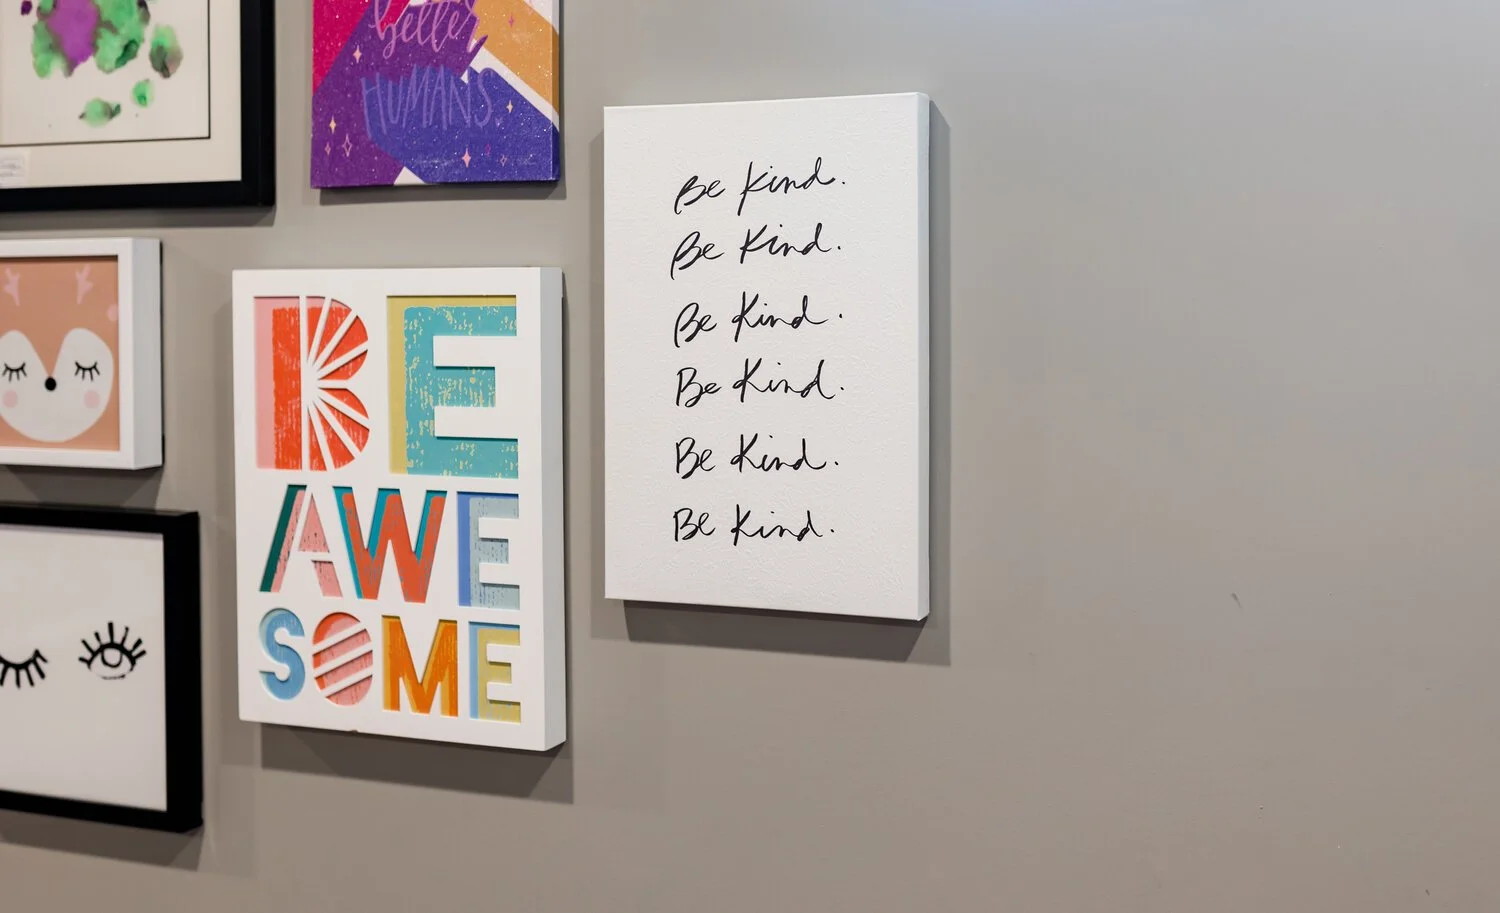 better
HUMANS.
BE
AWE
SOME
Be Kind.
Be Kind.
Be Kind.
Be Kind.
Be Kind.
Be Kind.